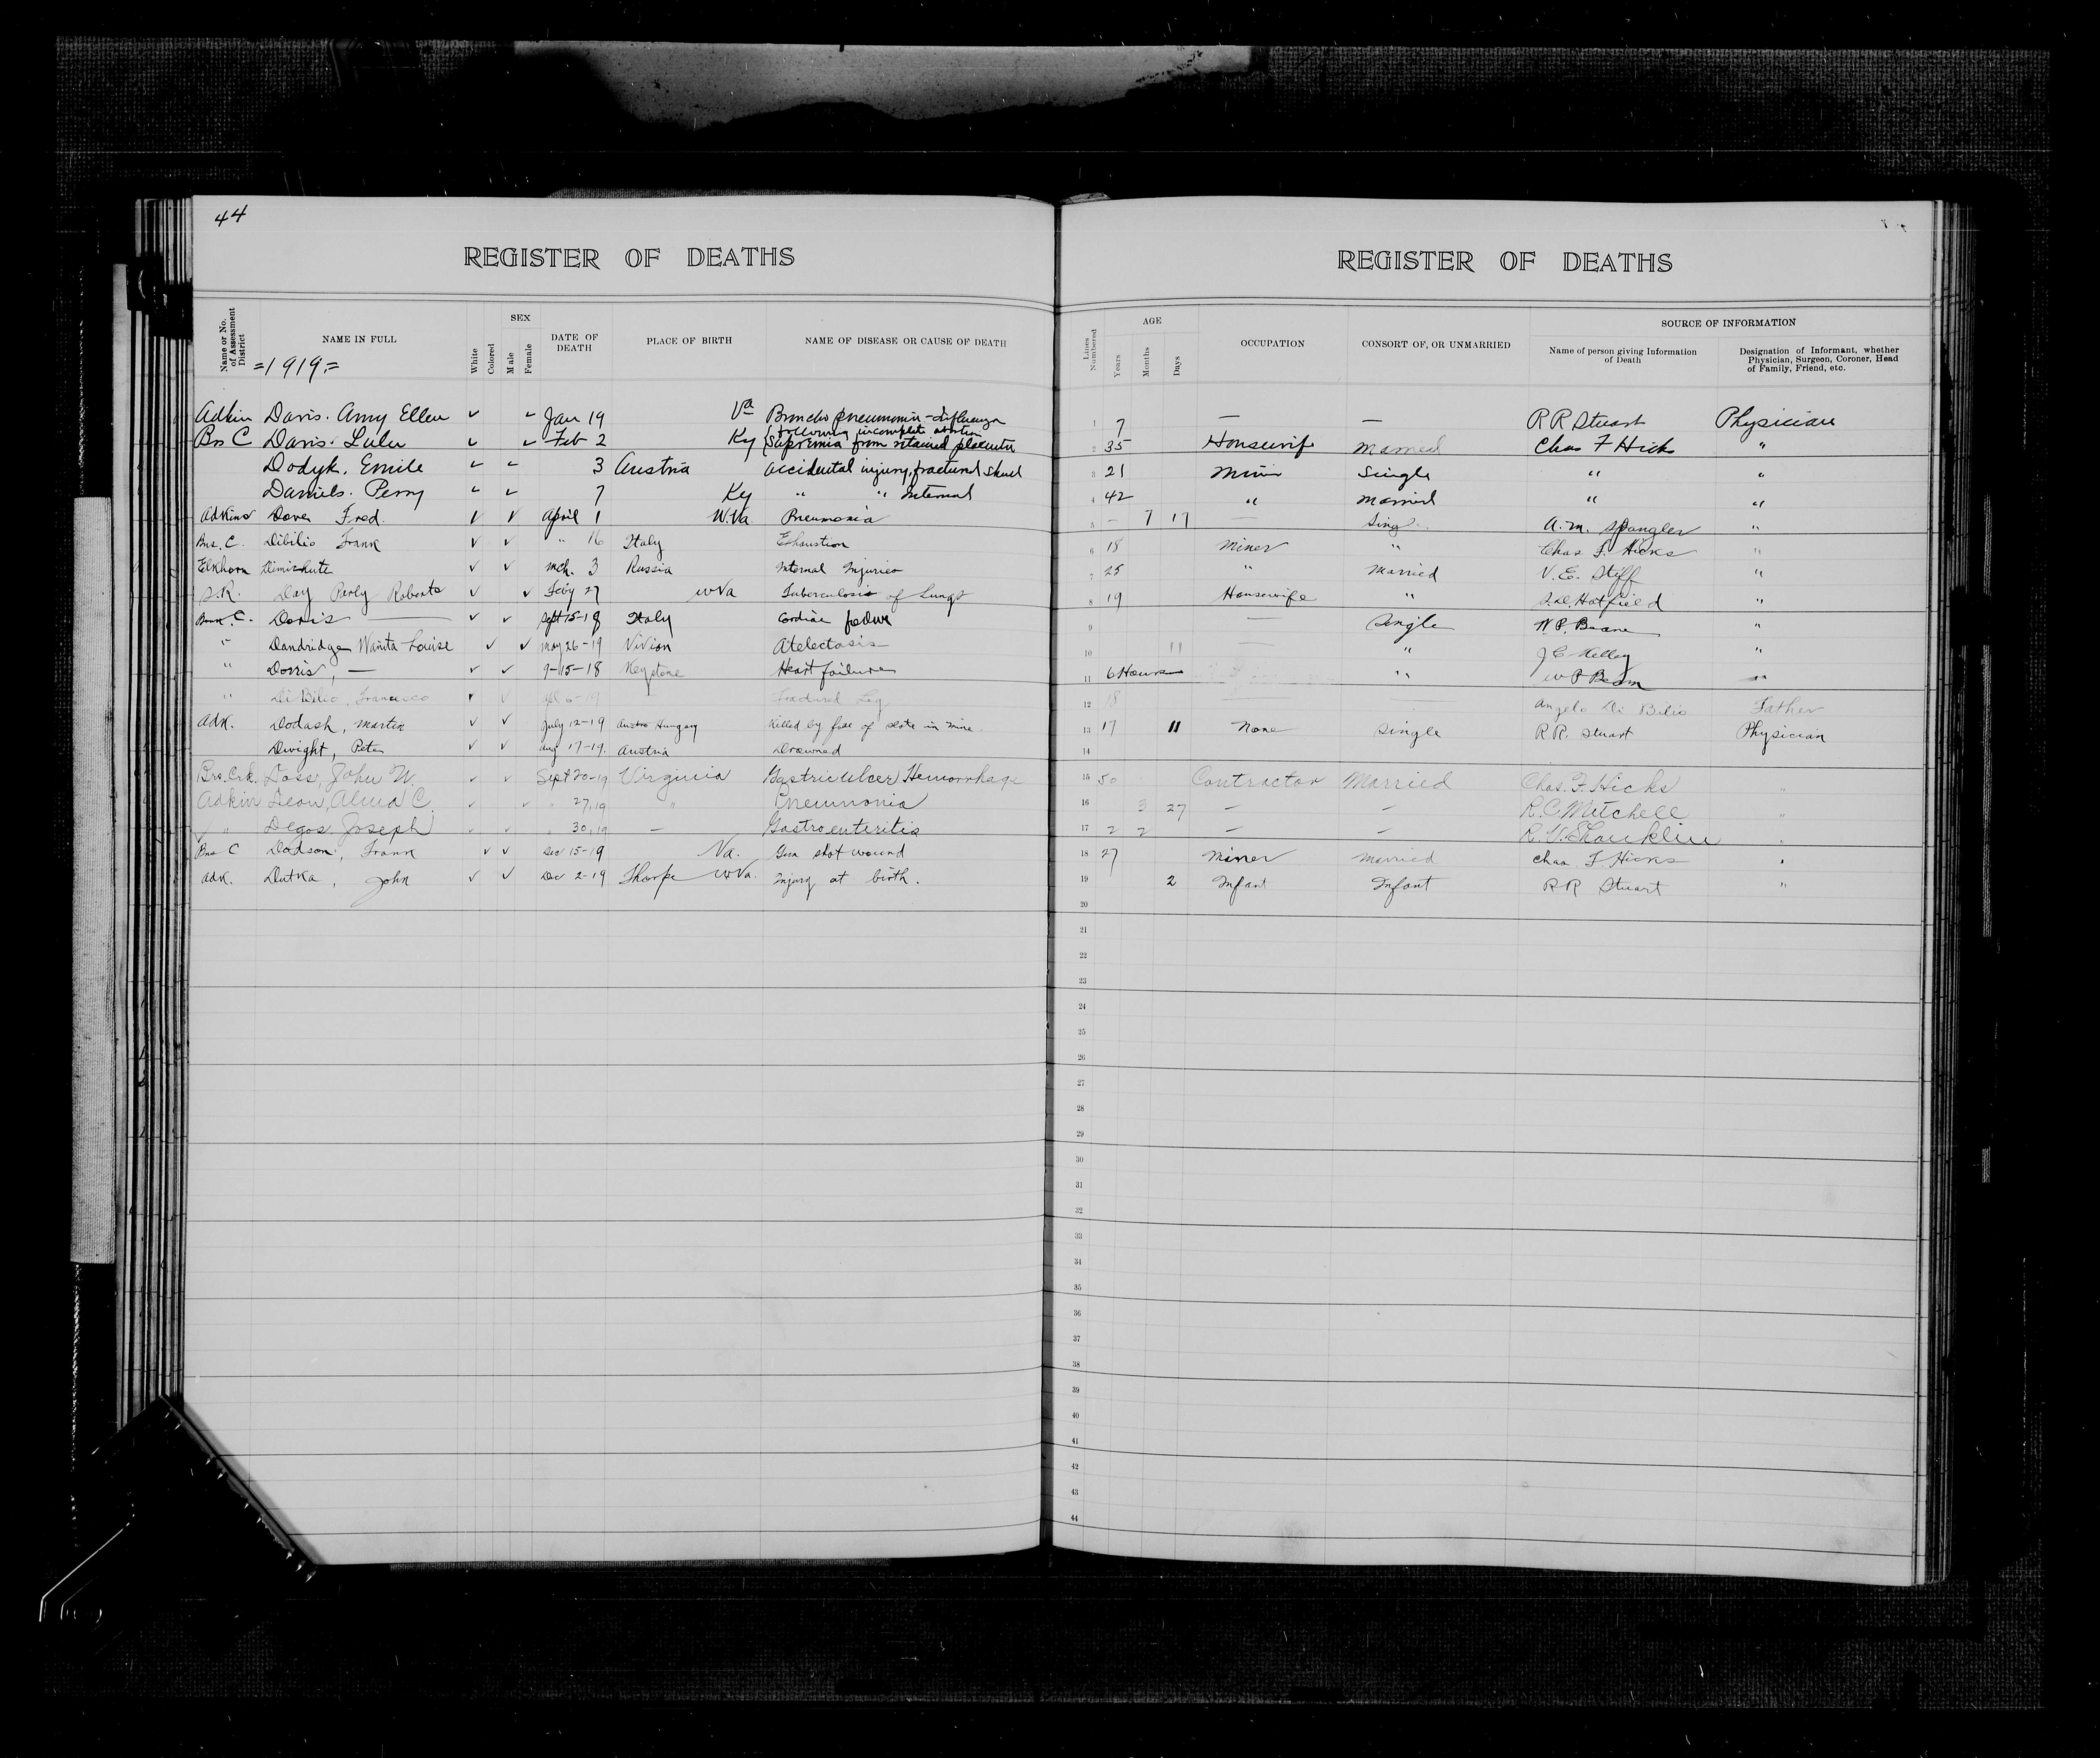 44
REGISTER OF DEATHS
Name or No. of Assessment District
NAME IN FULL
=1919=
White
Colored
SEX
Male
Female
DATE OF DEATH
PLACE OF BIRTH
NAME OF DISEASE OR CAUSE OF DEATH
Adkin Davis. Amy Ellen ✓ ✓ Jan 19 Va Broncho pneumonia - Influenza
following incomplete abortion
Brs C Davis. Lulu ✓ ✓ Feb 2 Ky {Sapremia from retained placenta
Dodyk. Emile ✓ ✓ 3 Austria accidental injury, fractured skull
Daniels. Perry ✓ ✓ 7 Ky " " Internal
Adkins Dover Fred. ✓ ✓ April 1 W.Va Pneumonia
Bns. C. Dibilio Frank ✓ ✓ " 16 Italy Exhaustion
Elkhorn ✓ ✓ Mch. 3 Russia Internal Injuries
S.R. Day Perly Roberts ✓ ✓ Feby 27 W Va Tuberculosis of Lungs
C. Doris — ✓ ✓ Sept 15-18 Italy Cardiac
" Dandridge Wanita Louise ✓ ✓ May 26-19 Vivian Atelectasis
" Dorris, — ✓ ✓ 9-15-18 Keystone Heart failure
" Di Bilio, Francisco ✓ ✓ 6-19 Fractured Leg
Adk. Dodash, Martin ✓ ✓ July 12-19 Austro Hungary Killed by fall of slate in mine.
Dwight, Peter ✓ ✓ Aug 17-19. Austria Drowned
Brs. Crk. Doss, John W. ✓ ✓ Sept 20-19 Virginia Gastric Ulcer, Hemorrhage
Adkin Dean, Alma C. ✓ ✓ " 27, 19 " Pneumonia
" Degos, Joseph ✓ ✓ " 30, 19 — Gastroenteritis
Bns C Dodson, Frank ✓ ✓ Dec 15-19 Va. Gun shot wound
Adk. Dutka, John ✓ ✓ Dec 2-19 Thorpe W Va. Injury at birth.
REGISTER OF DEATHS
Lines Numbered
AGE
Years
Months
Days
OCCUPATION
CONSORT OF, OR UNMARRIED
SOURCE OF INFORMATION
Name of person giving Information of Death
Designation of Informant, whether Physician, Surgeon, Coroner, Head of Family, Friend, etc.
1 7 — — R R Stuart Physician
2 35 Housewife Married Chas F Hicks "
3 21 Miner Single " "
4 42 " Married " "
5 - 7 17 — Single A. M. Spangler "
6 18 Miner " Chas F. Hicks "
7 25 " Married V. E. Stiff "
8 19 Housewife " S.D. Hatfield "
9 — Single W. P. Beane "
10 11 — " J C Kelley "
11 6 Hours " W P Beam "
12 18 — — Angelo Di Bilio Father
13 17 11 None Single R R. Stuart Physician
14
15 50 Contractor Married Chas. F. Hicks "
16 3 27 — — R. C. Mitchell "
17 2 2 — — R. V. Shanklin "
18 27 Miner Married Chas. F. Hicks "
19 2 Infant Infant R R Stuart "
20
21
22
23
24
25
26
27
28
29
30
31
32
33
34
35
36
37
38
39
40
41
42
43
44